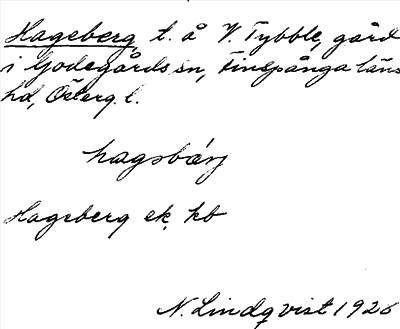 Hageberg, t. å V. Tybble, gård
i Godegårds sn, Finspånga läns
hd, Österg. l.
hagsbärj
Hageberg ek. kb
N. Lindqvist 1926